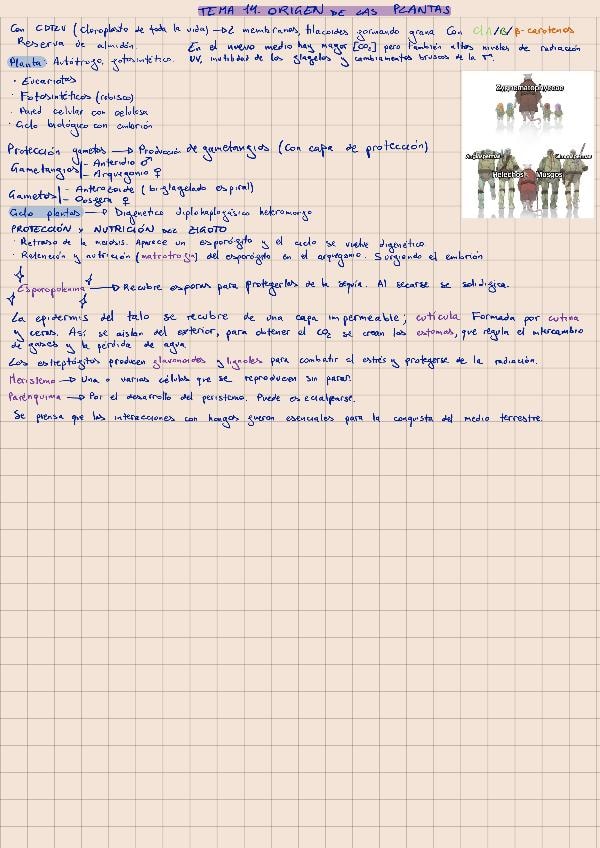 TEMA 14. ORIGEN DE LAS PLANTAS
Con CDTLV (cloroplasto de toda la vida) → 2 membranas, tilacoides formando grana Con Cl A/B/β-carotenos
Reserva de almidón. En el nuevo medio hay mayor [CO2] pero también altos niveles de radiación
Planta: Autótrofo, fotosintético. UV, inutilidad de los flagelos y cambiamentos bruscos de la Tª.
· Eucariotas
· Fotosintéticos (rubisco)
· Pared celular con celulosa
· Ciclo biológico con embrión
Zygnematophyceae
Protección gametos → Producción de gametangios (con capa de protección)
Gametangios - Anteridio ♂
- Arquegonio ♀
Angiospermas Gimnospermas
Helechos Musgos
Gametos - Anterozoide (biflagelado espiral)
- Oosfera ♀
Ciclo plantas → Digenético diplohaplofásico heteromorfo
PROTECCIÓN Y NUTRICIÓN DEL ZIGOTO
· Retraso de la meiosis. Aparece un esporófito y el ciclo se vuelve digenético
· Retención y nutrición (matrotrofia) del esporófito en el arquegonio. Surgiendo el embrión
Esporopolenina → Recubre esporas para protegerlas de la sequía. Al secarse se solidifica.
La epidermis del talo se recubre de una capa impermeable; cutícula Formada por cutina
y ceras. Así se aislan del exterior, para obtener el CO2 se crean los estomas, que regula el intercambio
de gases y la pérdida de agua
Los estreptófitos producen flavonoides y lignoles para combatir el estrés y protegerse de la radiación.
Meristemo → Una o varias células que se reproducen sin parar.
Parénquima → Por el desarrollo del
Se piensa que las interacciones con hongos fueron esenciales para la conquista del medio terrestre.